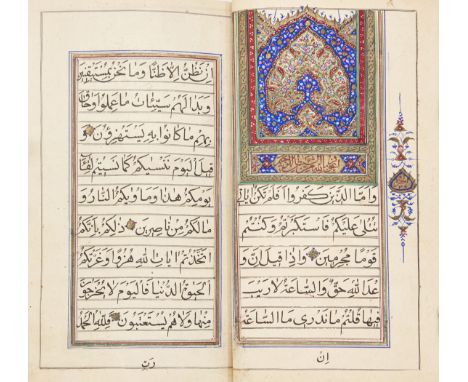 بسم الله الرحمن الرحيم
واما الذين كفروا افلم تكن اياتى
تتلى عليكم فاستكبرتم وكنتم
قوما مجرمين واذا قيل ان و
عد الله حق والساعة لا ريب
فيها قلتم ما ندرى ما الساعة
ان
ان نظن الا ظنا وما نحن بمستيقنين
وبدا لهم سيئات ما عملوا وحاق
بهم ما كانوا به يستهزؤن و
قيل اليوم ننسيكم كما نسيتم لقاء
يومكم هذا وماويكم النار و
مالكم من ناصرين ذلكم بانكم
اتخذتم ايات الله هزوا وغرتكم
الحيوة الدنيا فاليوم لا يخرجون
منها ولا هم يستعتبون فلله الحمد
رب